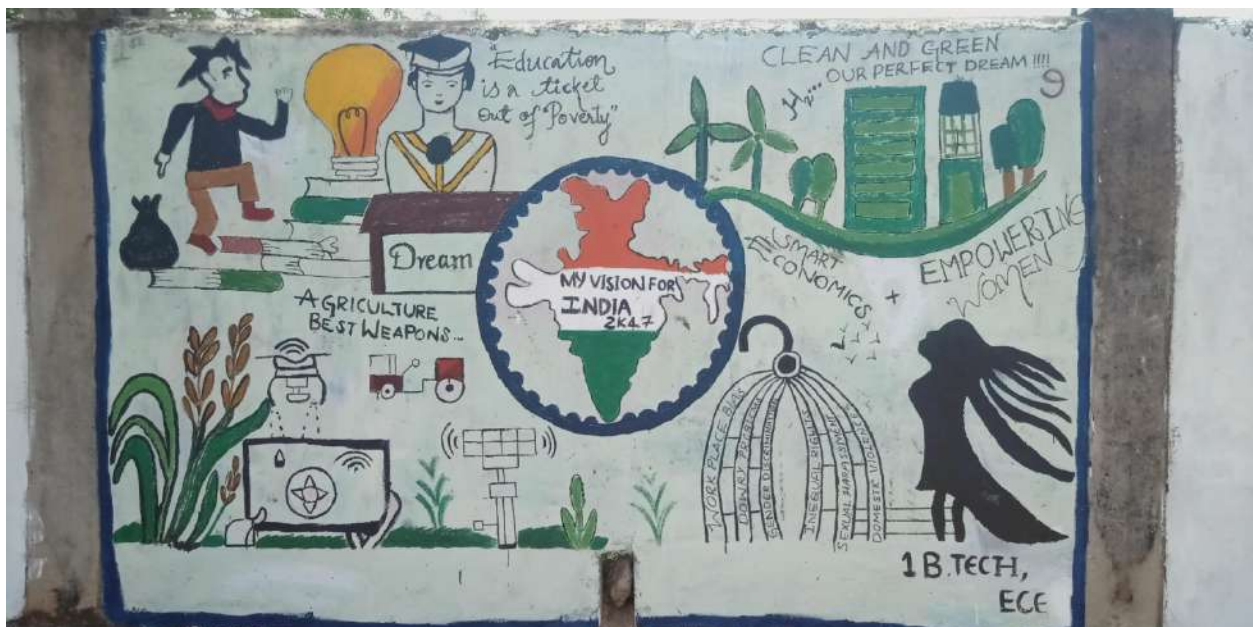 "Education
is a ticket
out of Poverty"
CLEAN AND GREEN
OUR PERFECT DREAM !!!!
H2...
Dream
MY VISION FOR
INDIA
2K47
AGRICULTURE
BEST WEAPONS...
SMART
ECONOMICS
+
EMPOWERING
WOMEN
WORK PLACE BIAS
DOWRY PROBLEMS
GENDER DISCRIMINATION
INEQUAL RIGHTS
SEXUAL HARASSMENT
DOMESTIC VIOLENCE
1 B.TECH,
ECE